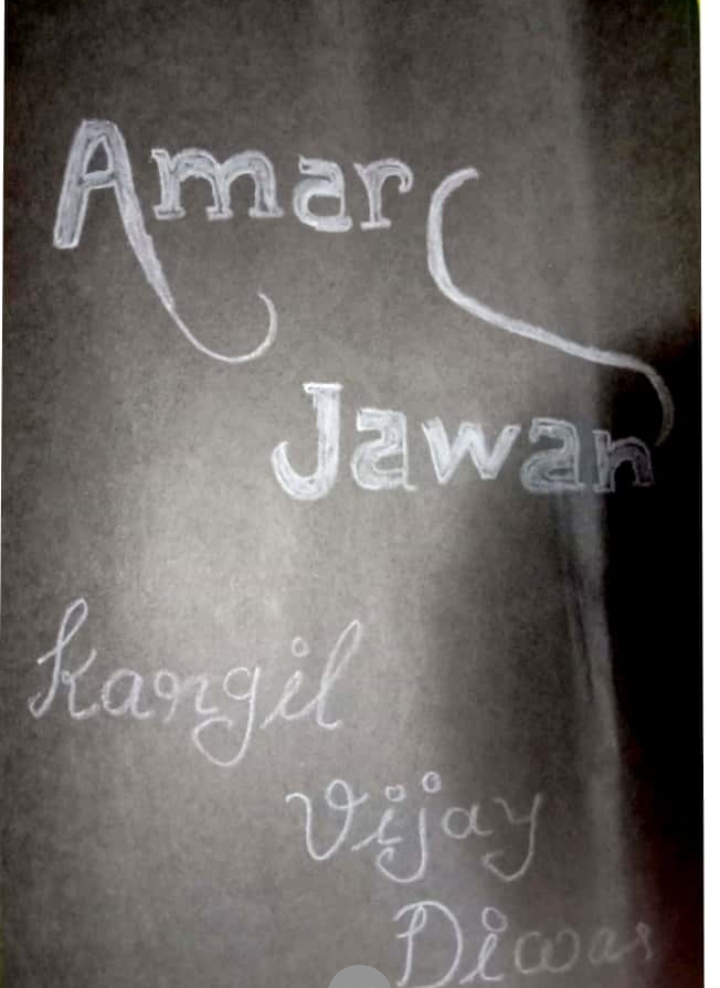 Amar
Jawan
Kargil
Vijay
Diwas